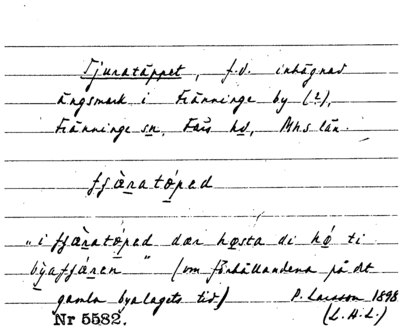 Tjuratäppet, f.d. inhägnad
ängsmark i Fränninge by (2),
Fränninge sn, Färs hd, Mhs län.
fjæratóped
"i fjæratóped dær høsta di hǿ ti
býafjáren" (om förhållandena på det
gamla byalagets tid.) P. Larsson 1898
Nr 5582. (L.A.L.)